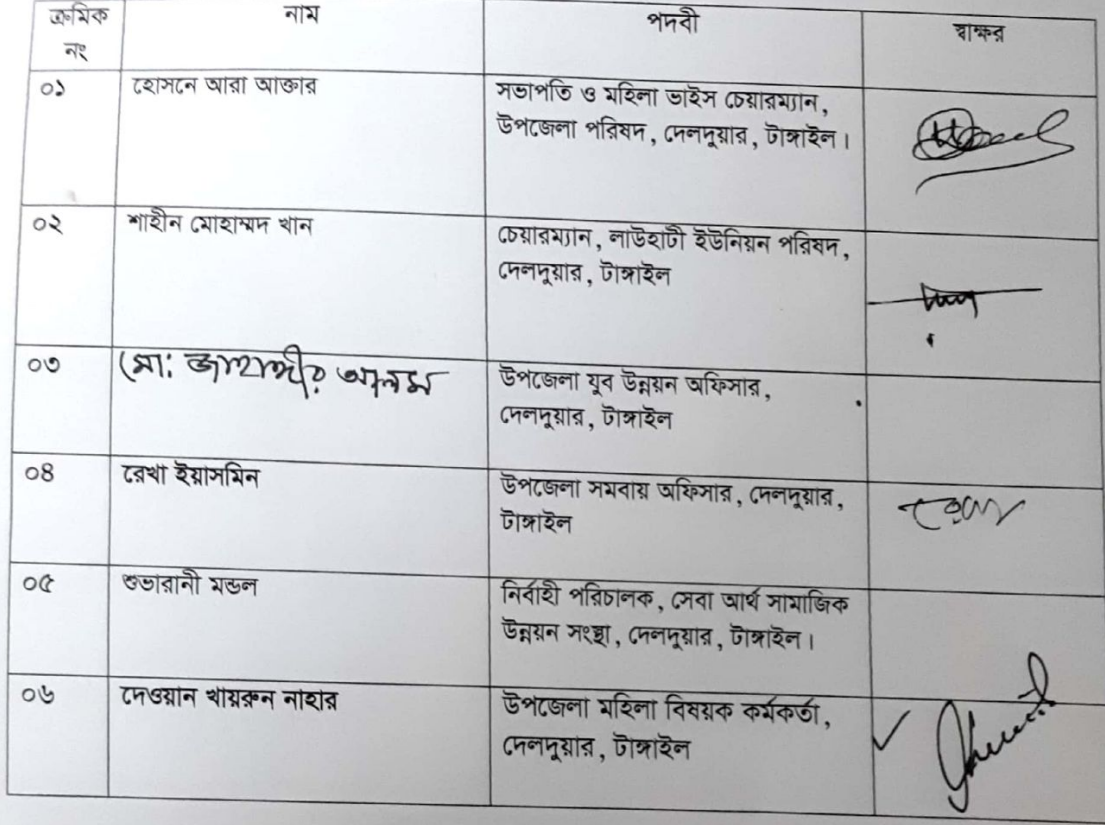 ক্রমিক নং নাম পদবী স্বাক্ষর
০১ হোসনে আরা আক্তার সভাপতি ও মহিলা ভাইস চেয়ারম্যান,
উপজেলা পরিষদ, দেলদুয়ার, টাঙ্গাইল।
০২ শাহীন মোহাম্মদ খান চেয়ারম্যান, লাউহাটী ইউনিয়ন পরিষদ,
দেলদুয়ার, টাঙ্গাইল
০৩ মো: জাহাঙ্গীর আলম উপজেলা যুব উন্নয়ন অফিসার,
দেলদুয়ার, টাঙ্গাইল
০৪ রেখা ইয়াসমিন উপজেলা সমবায় অফিসার, দেলদুয়ার,
টাঙ্গাইল
০৫ শুভারানী মন্ডল নির্বাহী পরিচালক, সেবা আর্থ সামাজিক
উন্নয়ন সংস্থা, দেলদুয়ার, টাঙ্গাইল।
০৬ দেওয়ান খায়রুন নাহার উপজেলা মহিলা বিষয়ক কর্মকর্তা,
দেলদুয়ার, টাঙ্গাইল